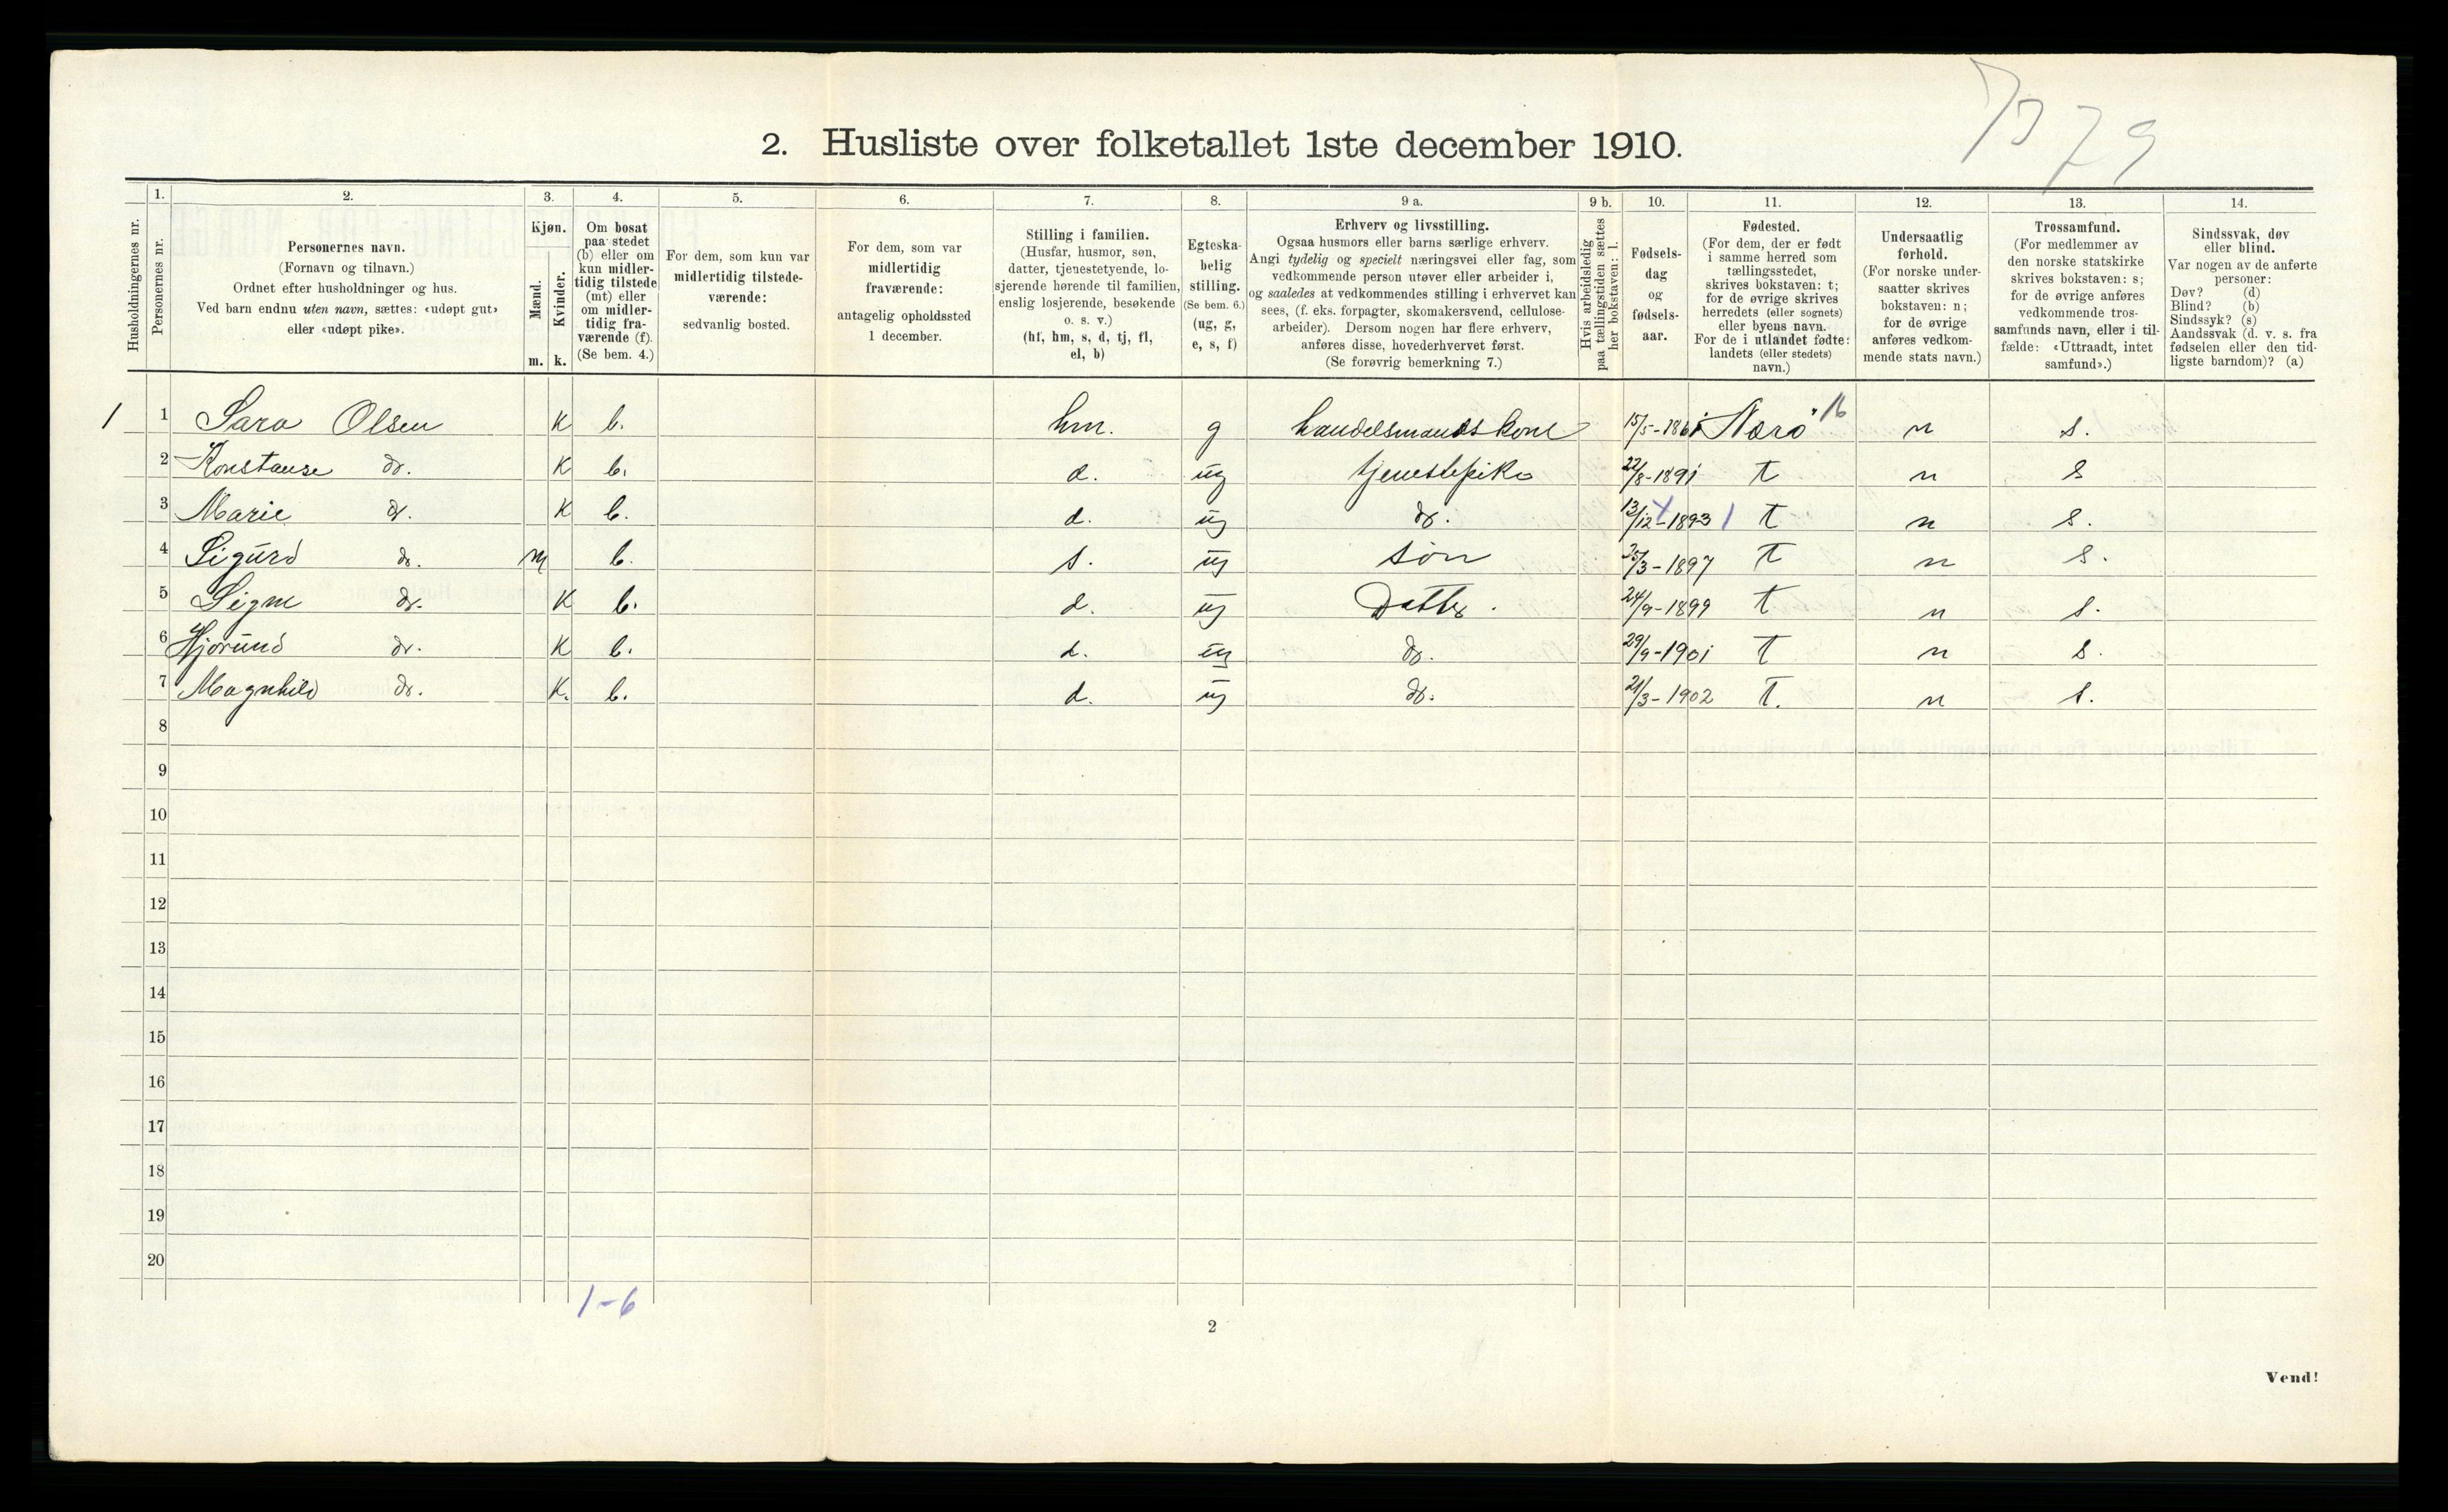 2. Husliste over folketallet 1ste december 1910.
1. 2. 3. 4. 5. 6. 7. 8. 9 a. 9 b. 10. 11. 12. 13. 14.
Husholdningernes nr.
Personernes nr.
Personernes navn.
(Fornavn og tilnavn.)
Ordnet efter husholdninger og hus.
Ved barn endnu uten navn, sættes: «udøpt gut»
eller «udøpt pike».
Kjøn.
Mænd.
m.
Kvinder.
k.
Om bosat
paa stedet
(b) eller om
kun midler-
tidig tilstede
(mt) eller
om midler-
tidig fra-
værende (f).
(Se bem. 4.)
For dem, som kun var
midlertidig tilstede-
værende:
sedvanlig bosted.
For dem, som var
midlertidig
fraværende:
antagelig opholdssted
1 december.
Stilling i familien.
(Husfar, husmor, søn,
datter, tjenestetyende, lo-
sjerende hørende til familien,
enslig losjerende, besøkende
o. s. v.)
(hf, hm, s, d, tj, fl,
el, b)
Egteska-
belig
stilling.
(Se bem. 6.)
(ug, g,
e, s, f)
Erhverv og livsstilling.
Ogsaa husmors eller barns særlige erhverv.
Angi tydelig og specielt næringsvei eller fag, som
vedkommende person utøver eller arbeider i,
og saaledes at vedkommendes stilling i erhvervet kan
sees, (f. eks. forpagter, skomakersvend, cellulose-
arbeider). Dersom nogen har flere erhverv,
anføres disse, hovederhvervet først.
(Se forøvrig bemerkning 7.)
Hvis arbeidsledig
paa tællingstiden sættes
her bokstaven: l.
Fødsels-
dag
og
fødsels-
aar.
Fødested.
(For dem, der er født
i samme herred som
tællingsstedet,
skrives bokstaven: t;
for de øvrige skrives
herredets (eller sognets)
eller byens navn.
For de i utlandet fødte:
landets (eller stedets)
navn.)
Undersaatlig
forhold.
(For norske under-
saatter skrives
bokstaven: n;
for de øvrige
anføres vedkom-
mende stats navn.)
Trossamfund.
(For medlemmer av
den norske statskirke
skrives bokstaven: s;
for de øvrige anføres
vedkommende tros-
samfunds navn, eller i til-
fælde: «Uttraadt, intet
samfund».)
Sindssvak, døv
eller blind.
Var nogen av de anførte
personer:
Døv? (d)
Blind? (b)
Sindssyk? (s)
Aandssvak (d. v. s. fra
fødselen eller den tid-
ligste barndom)? (a)
1 1 Sara Olsen K b. hm. g handelsmandskone 15/5-1861 Nærø n s.
2 Konstanse do. K b. d. ug tjenestepike 22/8-1891 t n s
3 Marie do. K b. d. ug do. 13/12-1893 t n s.
4 Sigurd do. m b. s. ug søn 25/3-1897 t n s.
5 Signe do. K b. d. ug Datter. 24/9-1899 t n s.
6 Hjørund do. K b. d. ug do. 29/9-1901 t n s.
7 Magnhild do. K. b. d. ug do. 21/3-1902 t. n s.
8
9
10
11
12
13
14
15
16
17
18
19
20
1-6
2
Vend!